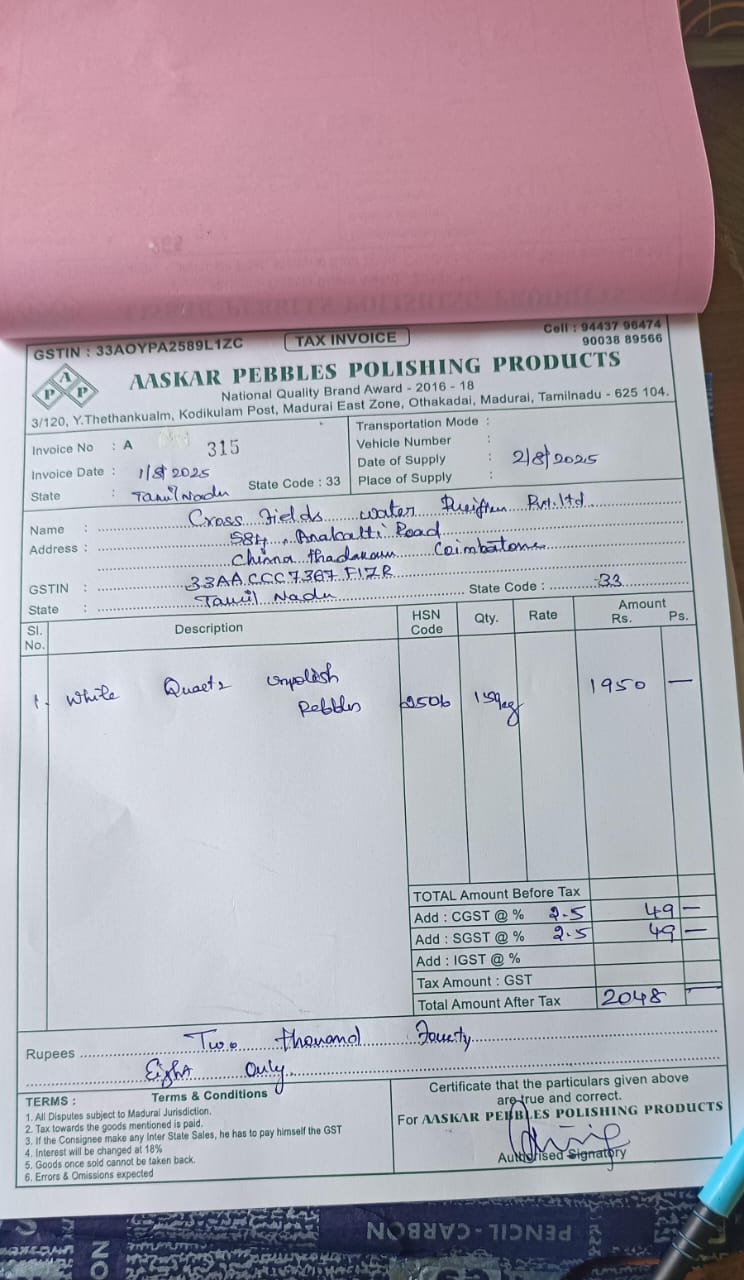 GSTIN : 33AOYPA2589L1ZC TAX INVOICE Cell : 94437 96474
90038 89566
A P P
AASKAR PEBBLES POLISHING PRODUCTS
National Quality Brand Award - 2016 - 18
3/120, Y.Thethankualm, Kodikulam Post, Madurai East Zone, Othakadai, Madurai, Tamilnadu - 625 104.
Invoice No : A 315
Invoice Date : 1/8/2025
State : Tamil Nadu State Code : 33
Transportation Mode :
Vehicle Number :
Date of Supply : 2/8/2025
Place of Supply :
Name : Cross Fields water Pvt.ltd
Address : 584, Anakatti Road
Chinna thadakam Coimbatore
GSTIN : 33AACCC7367F1ZR
State : Tamil Nadu State Code : 33
Sl. No. Description HSN Code Qty. Rate Amount Rs. Ps.
1. White Quartz unpolish 2506 1950 —
Pebbles
TOTAL Amount Before Tax
Add : CGST @ % 2.5 49 —
Add : SGST @ % 2.5 49 —
Add : IGST @ %
Tax Amount : GST
Total Amount After Tax 2048 —
Rupees Two thousand Fourty
Eight Only
TERMS : Terms & Conditions
1. All Disputes subject to Madurai Jurisdiction.
2. Tax towards the goods mentioned is paid.
3. If the Consignee make any Inter State Sales, he has to pay himself the GST
4. Interest will be changed at 18%
5. Goods once sold cannot be taken back.
6. Errors & Omissions expected
Certificate that the particulars given above
are true and correct.
For AASKAR PEBBLES POLISHING PRODUCTS
Authorised Signatory
PENCIL-CARBON